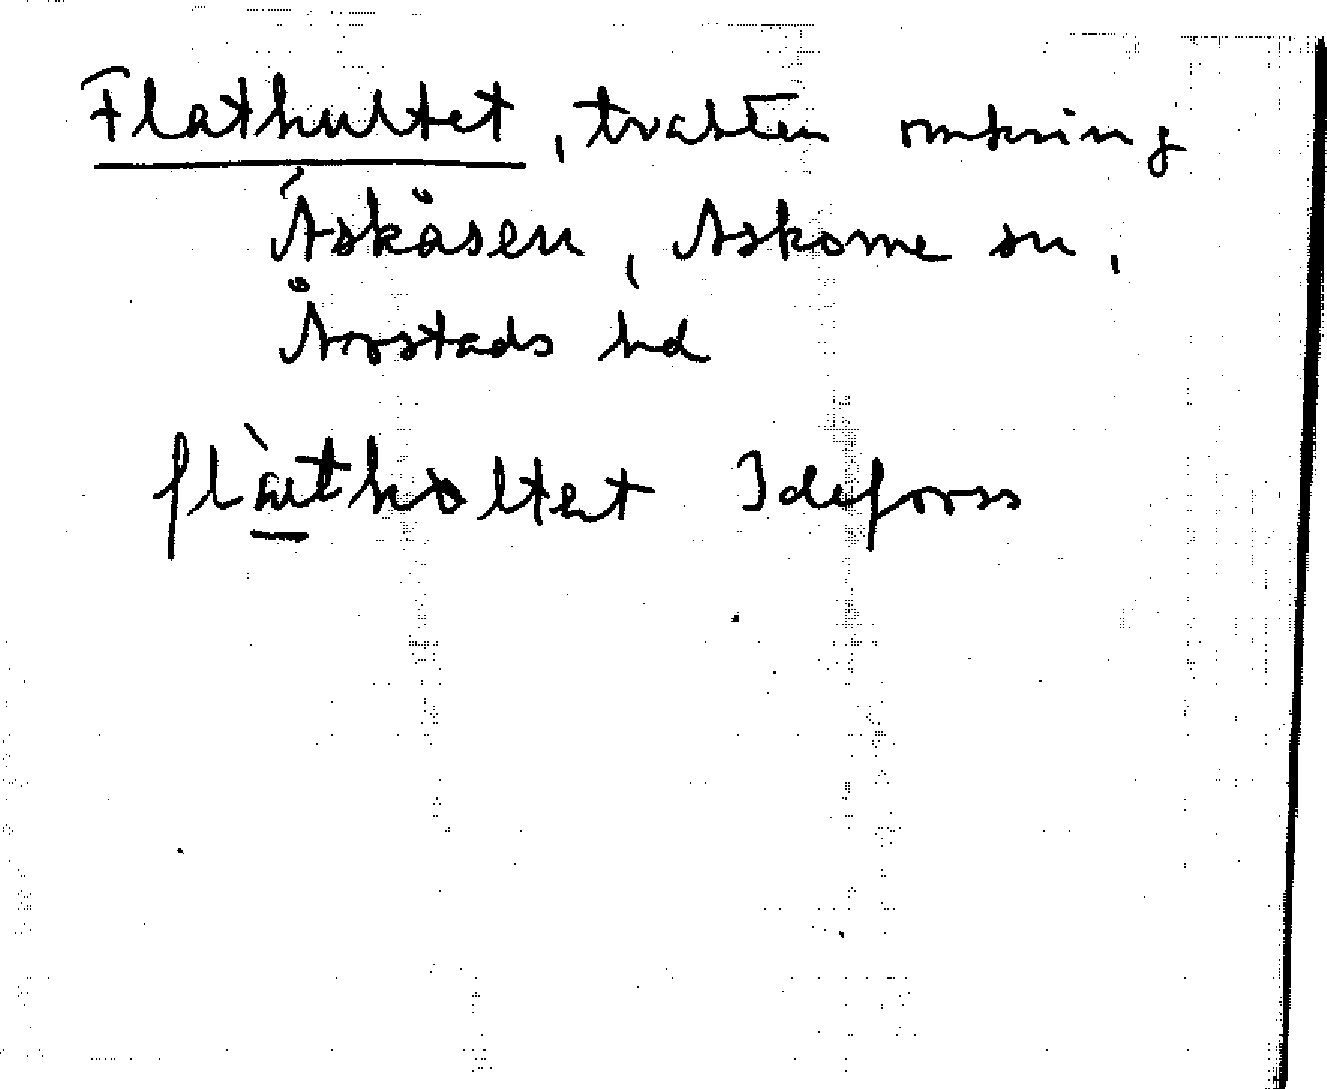 Flathultet, trakten omkring
Åskåsen, Askome sn,
Årstads hd
flàthòltet Idefors